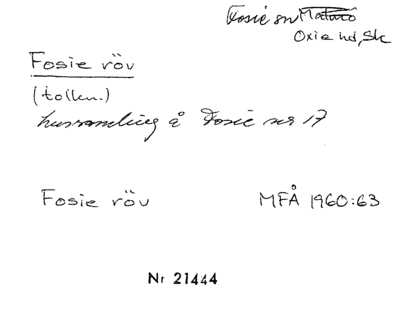 Fosie sn Malmö
Oxie hd, Sk
Fosie röv
(tolkn.)
hussamling å Fosie nr 17
Fosie röv MFÅ 1960:63
Nr 21444